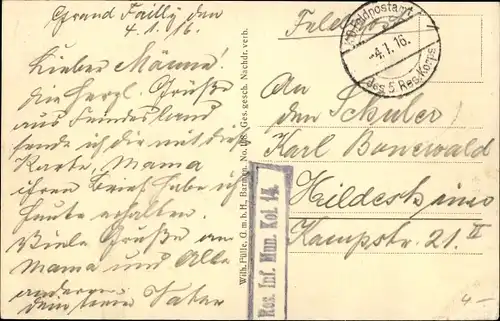 Grand Failly den
4.1.16.
Lieber Männe!
Die herzl. Grüße
aus Feindesland
sende ich dir mit dieser
Karte, Mama
ihren Brief habe ich
heute erhalten.
Viele Grüße an
Mama und Alle
anderen
dein treuer Vater
Wilh. Fülle, G.m.b.H., Barmen. No. Ges. gesch. Nachdr. verb.
Res. Inf. Mun. Kol. 14.
Feldpost
K.D. Feldpostamt
-4.1.16.
des 5 Res.-Korps
An
den Schüler
Karl Bonewald
Hildesheim
Kampstr. 21 II
4-